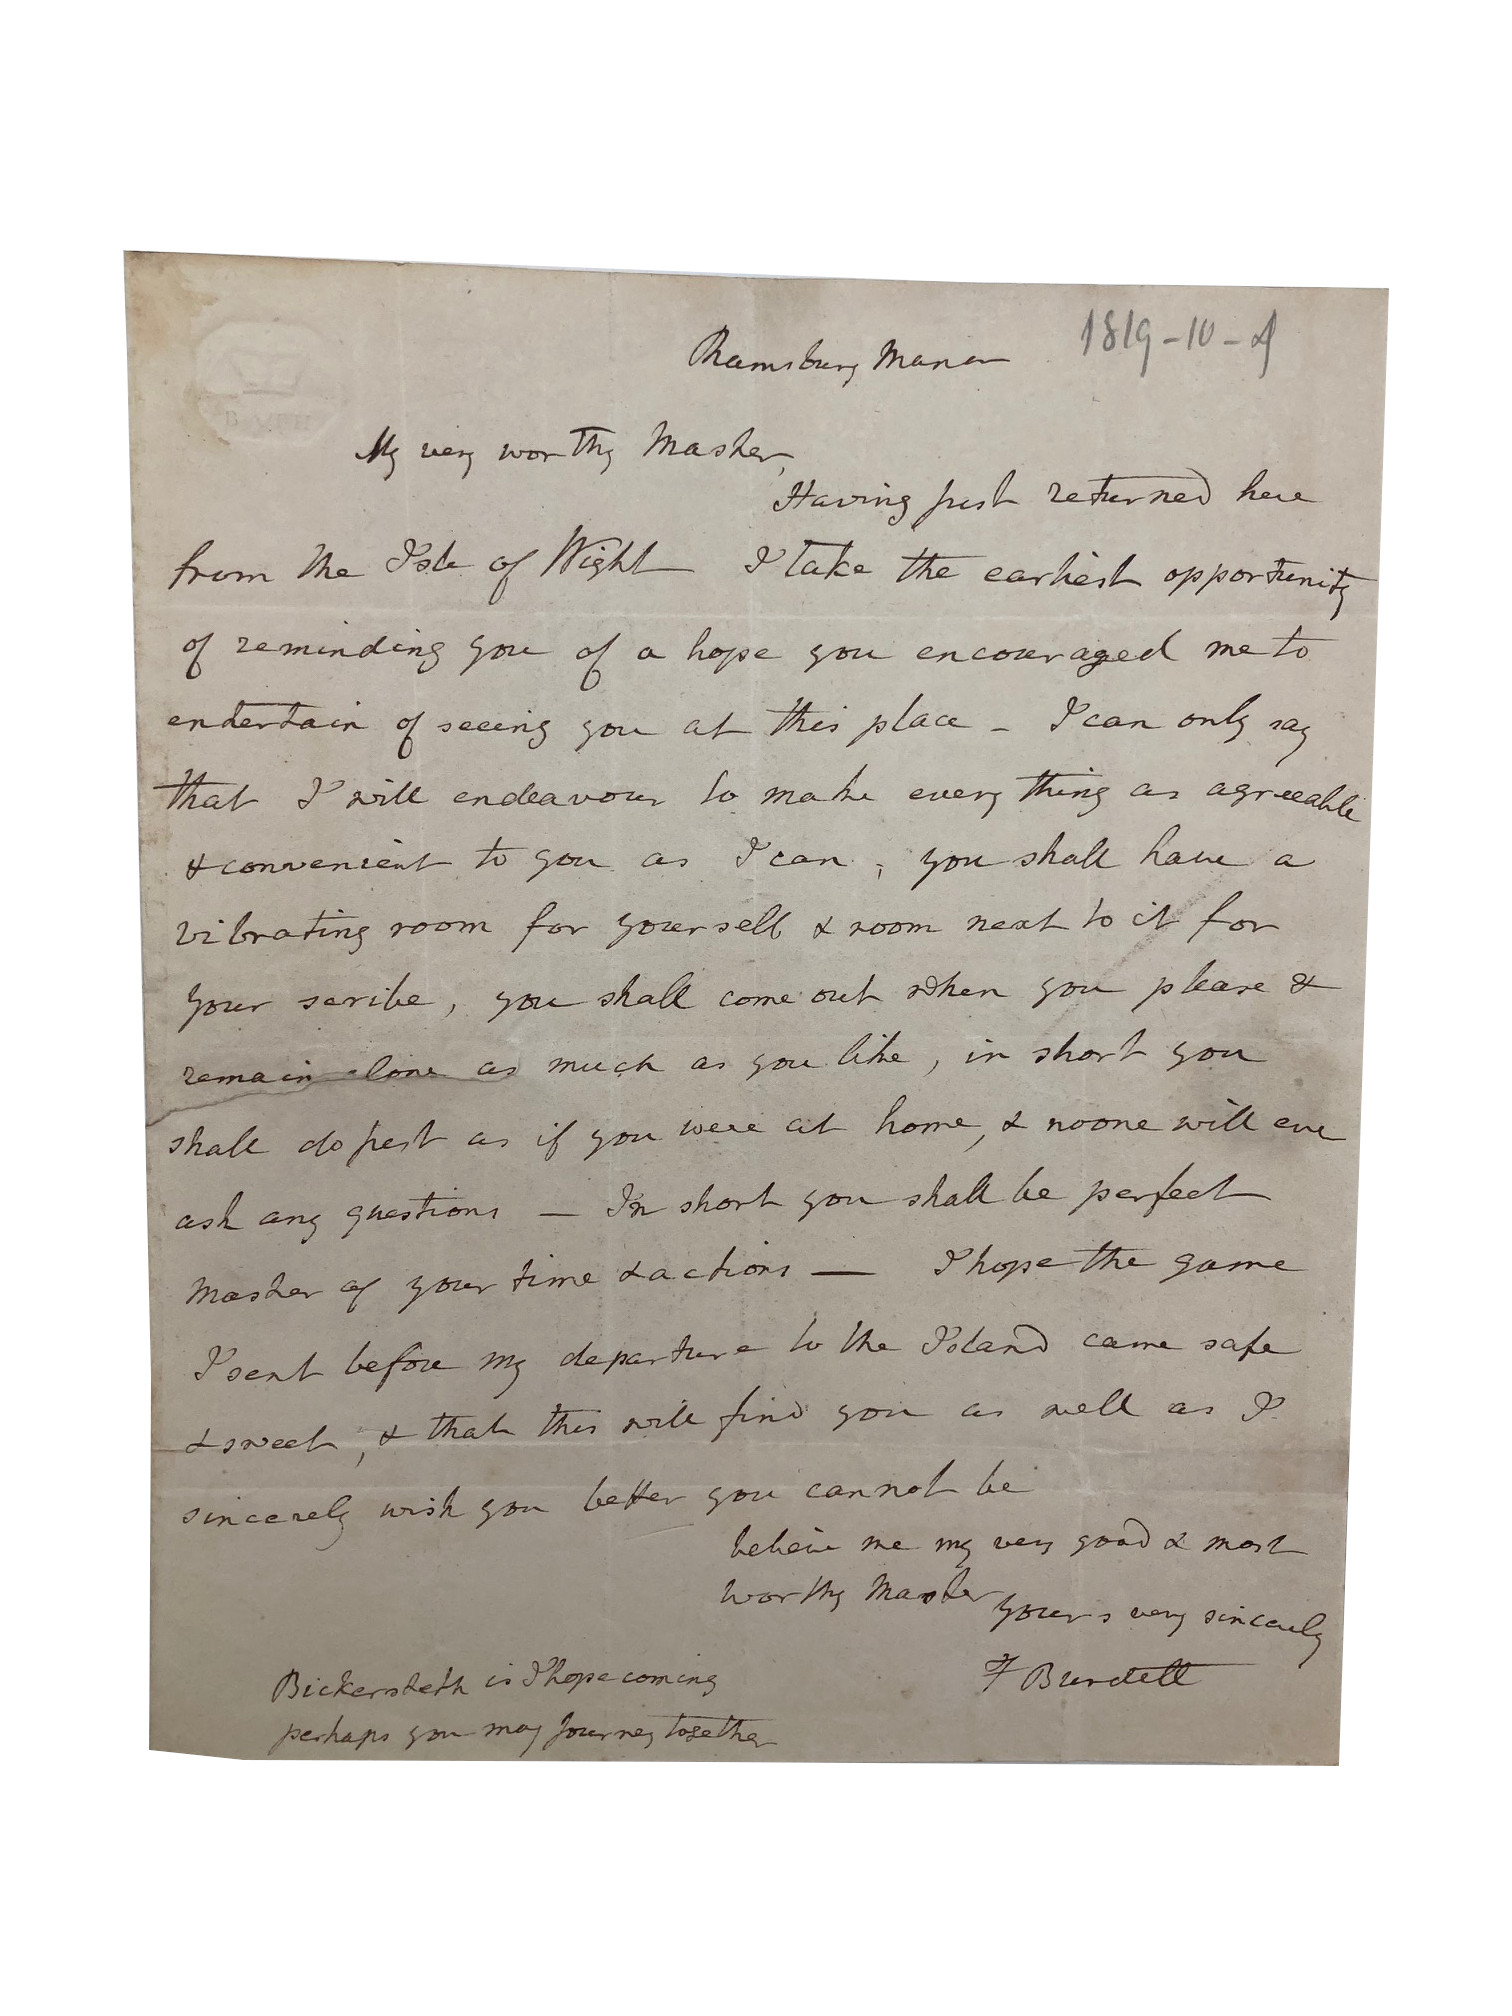 Ramsbury Manor 1819-10-4
My very worthy Master,
Having just returned here
from the Isle of Wight I take the earliest opportunity
of reminding you of a hope you encouraged me to
entertain of seeing you at this place - I can only say
that I will endeavour to make every thing as agreeable
& convenient to you as I can, you shall have a
vibrating room for yourself & room next to it for
your scribe, you shall come out when you please &
remain alone as much as you like, in short you
shall do just as if you were at home, & no one will ever
ask any questions — In short you shall be perfect
Master of your time & actions — I hope the game
I sent before my departure to the Island came safe
& sweet, & that this will find you as well as I
sincerely wish you better you cannot be
believe me my very good & most
worthy Master
yours very sincerely
F Burdett
Bickersteth is I hope coming
perhaps you may journey together